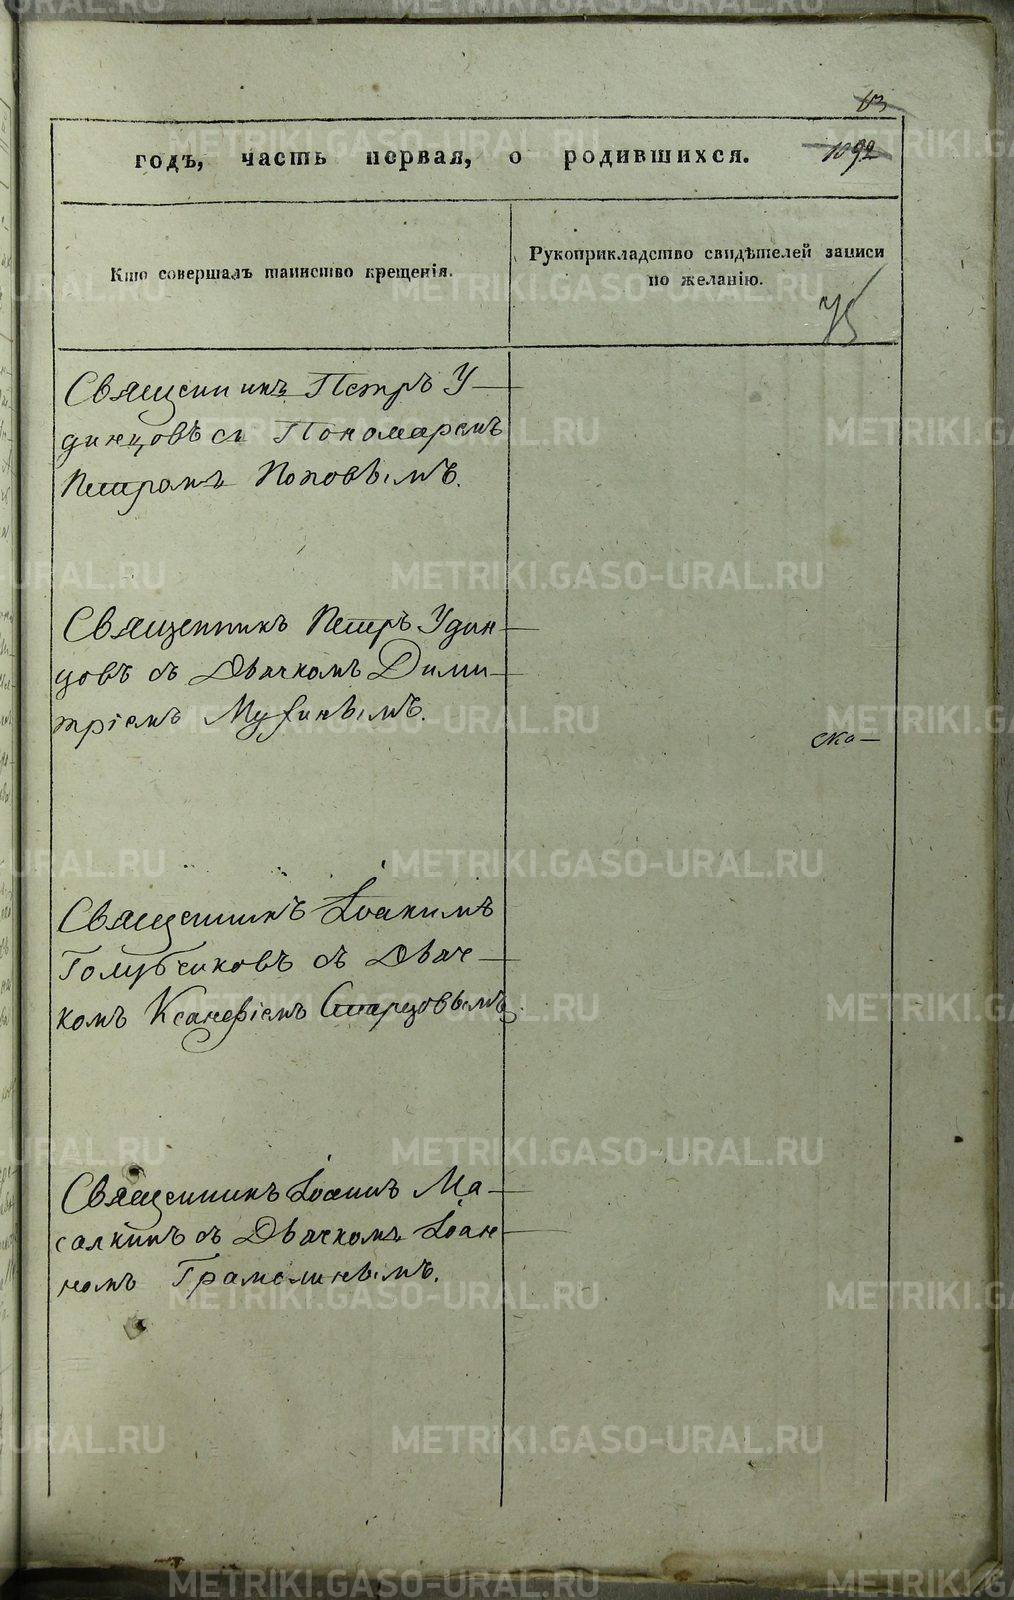 годъ, часть первая, о родившихся.
1092
Кто совершалъ таинство крещенія.
Рукоприкладство свидѣтелей записи
по желанію.
75
Священникъ Петръ У-
динцовъ съ Пономаремъ
Петромъ Поповымъ.
Священникъ Петръ Удин-
цовъ съ Дьячкомъ Дими-
тріемъ Мухинымъ.
ска-
Священникъ Іоакимъ
Голубчиковъ съ Дьяч-
комъ Ксанѳіемъ Старцовымъ
Священникъ Іоаннъ Ма-
салкинъ съ Дьячкомъ Іоан-
номъ Грамолинымъ.
METRIKI.GASO-URAL.RU